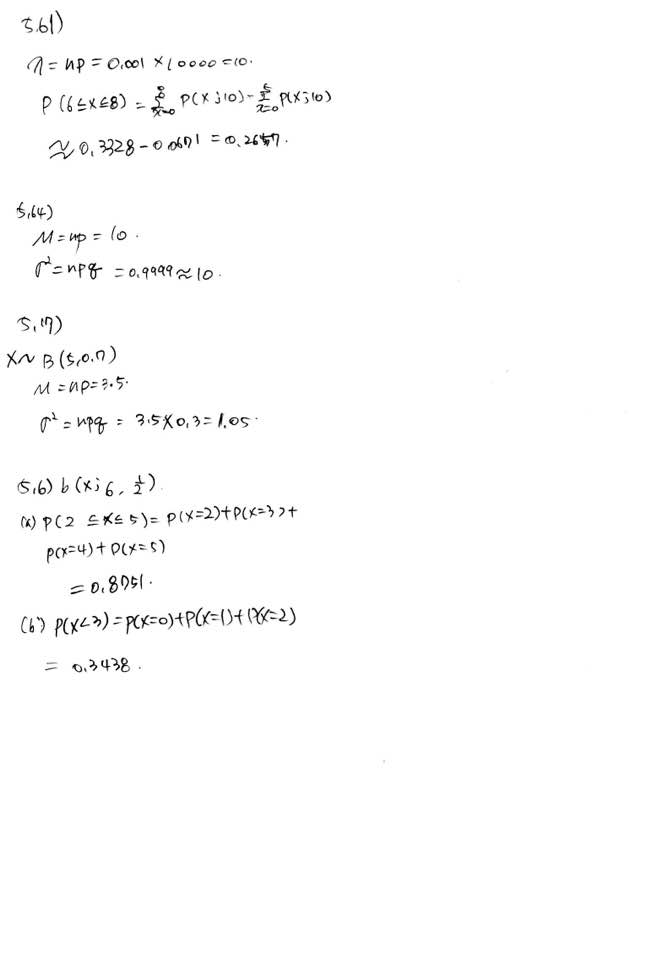 5.61)
λ = np = 0.001 × 10000 = 10.
P(6≤X≤8) = Σ⁸ₓ₌₀ P(X;10) - Σ⁵ₓ₌₀ P(X;10)
≈ 0.3328 - 0.0671 = 0.2657.
5.64)
M = np = 10.
σ² = npq = 0.9999 ≈ 10.
5.17)
X~B(5,0.7)
M = np = 3.5.
σ² = npq = 3.5 × 0.3 = 1.05.
5.6) b(x; 6, 1/2).
(a) P(2 ≤ X ≤ 5) = P(X=2) + P(X=3) +
P(X=4) + P(X=5)
= 0.8751.
(b) P(X<3) = P(X=0) + P(X=1) + P(X=2)
= 0.3438.